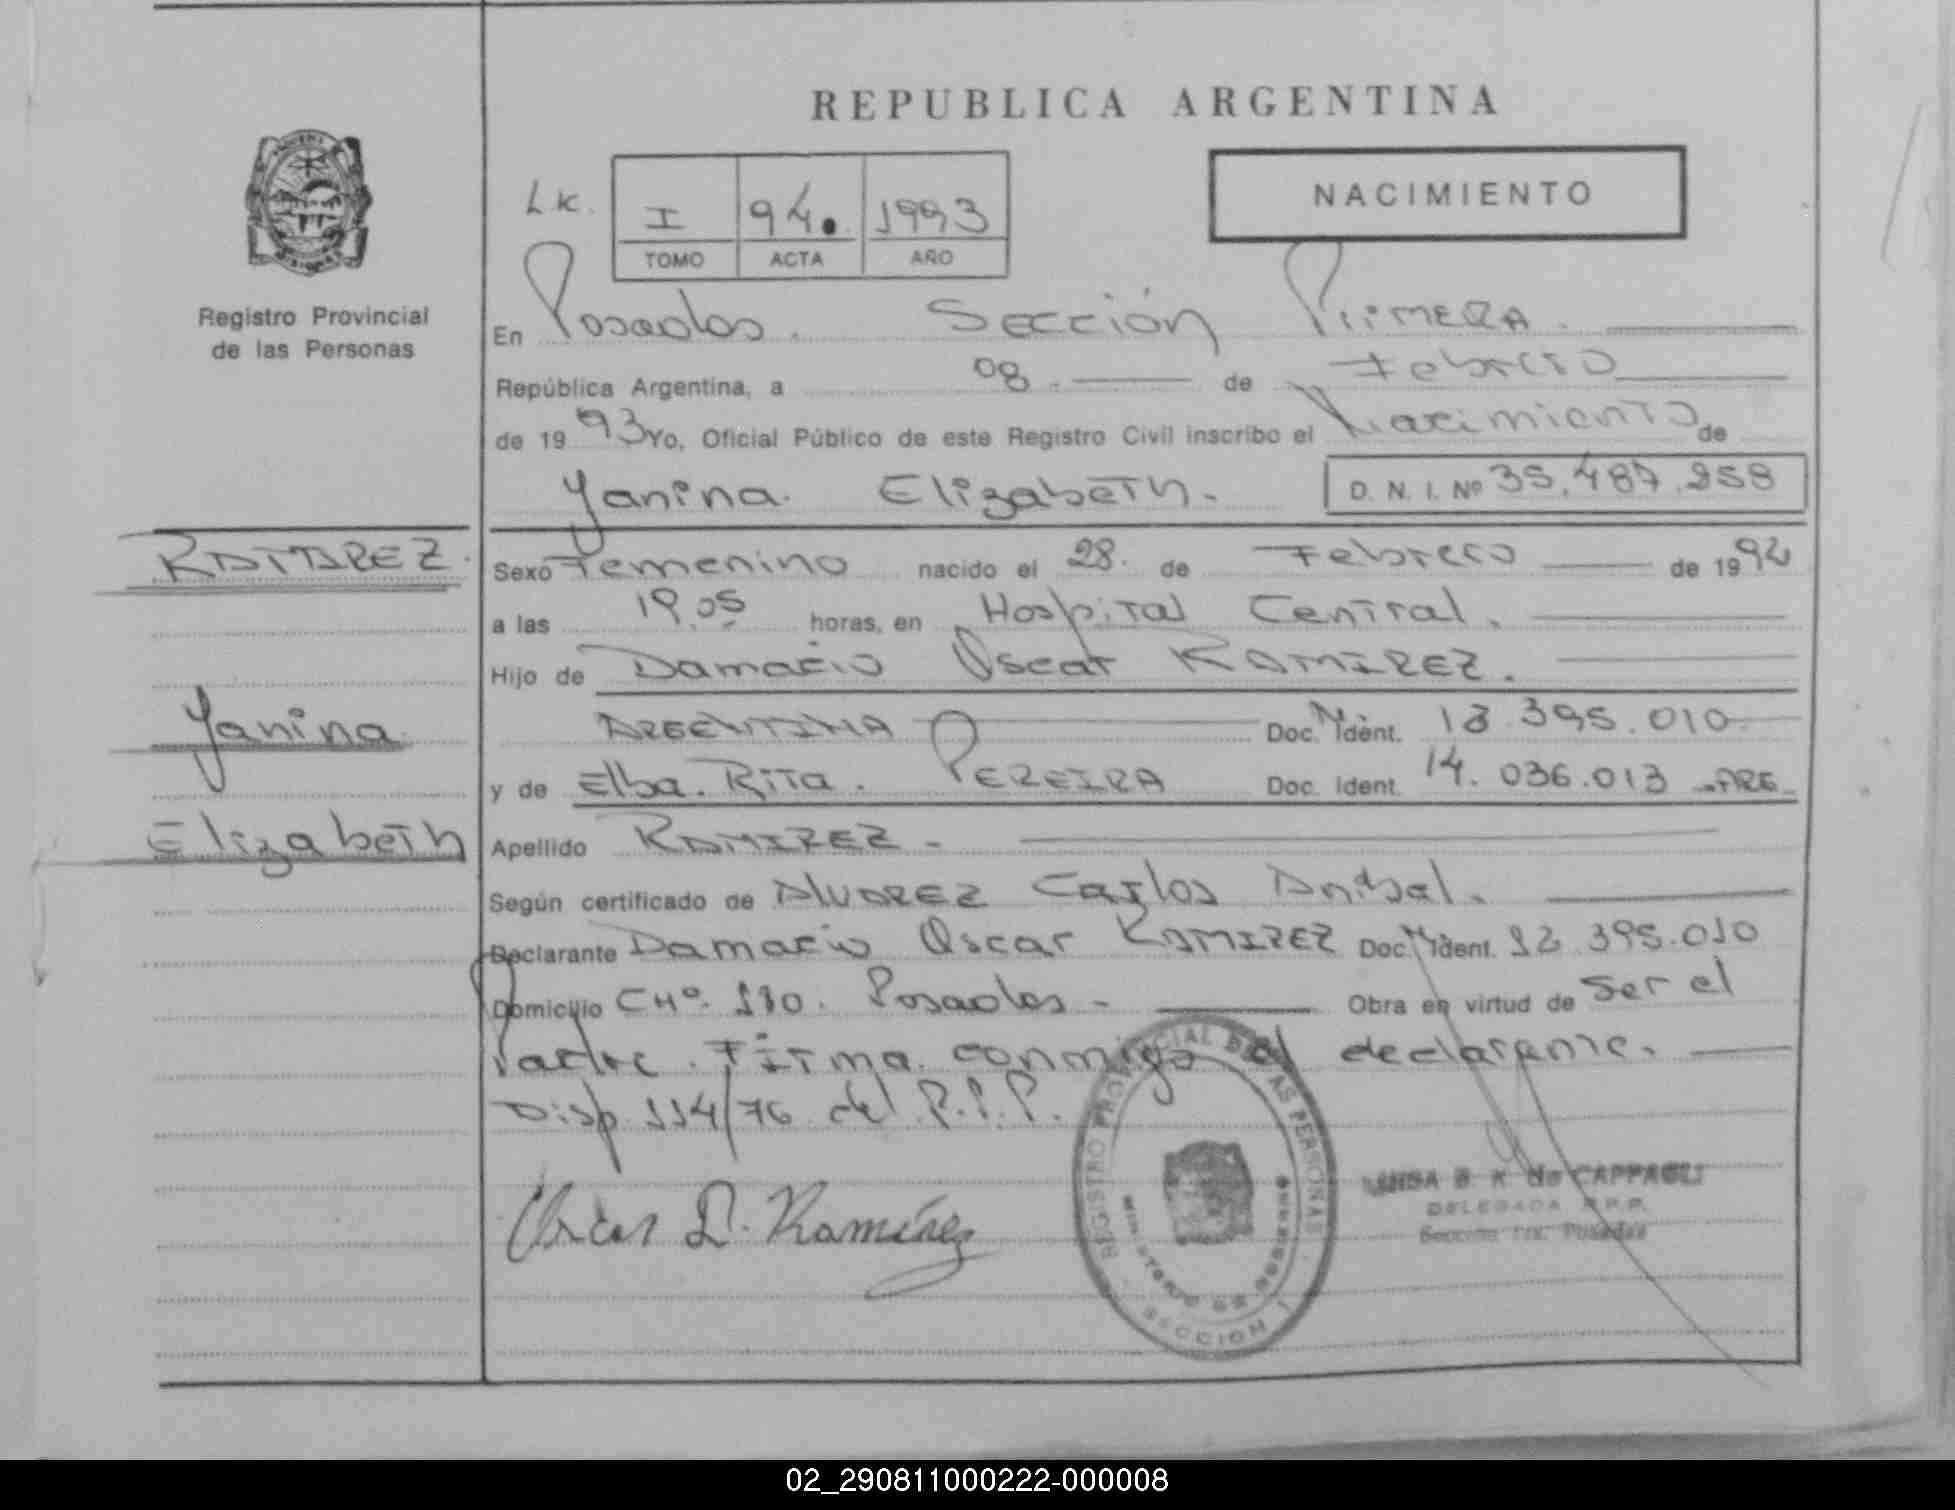 REPUBLICA ARGENTINA
NACIMIENTO
LK. I 94. 1993
TOMO ACTA AÑO
Registro Provincial
de las Personas
En Posadas. Sección Primera.
República Argentina, a 08. de Febrero
de 1993 Yo, Oficial Público de este Registro Civil inscribo el Nacimiento de
Yanina Elizabeth. D. N. I. Nº 35.487.258
RAMIREZ.
Sexo Femenino nacido el 28. de Febrero de 1992
a las 19.05 horas, en Hospital Central.
Hijo de Damacio Oscar RAMIREZ.
Yanina
ARGENTINA Doc. Ident. 395.010
y de Elba. Rita. PEREIRA Doc. Ident. 14.036.013 ARG
Elizabeth
Apellido RAMIREZ -
Según certificado de ALVAREZ Carlos Anibal.
Declarante Damacio Oscar RAMIREZ Doc. Ident. 395.010
Domicilio CHº. 110. Posadas - Obra en virtud de Ser el
Padre. Firma conmigo el declarante.
Disp. 114/76 del
Oscar D. Ramírez
REGISTRO PROVINCIAL DE LAS PERSONAS
MINISTERIO DE GOBIERNO
SECCION 1
de CAPPAGLI
DELEGADA R.P.P.
Sección 1ra. Posadas
02_290811000222-000008